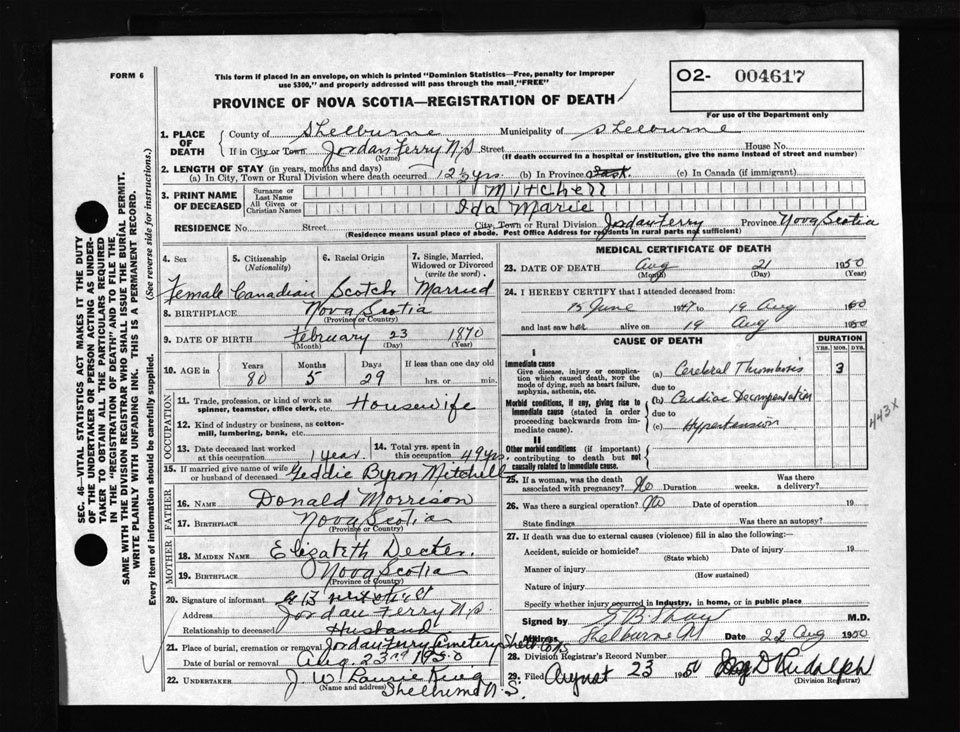 FORM 6
This form if placed in an envelope, on which is printed "Dominion Statistics—Free, penalty for improper
use $300," and properly addressed will pass through the mail "FREE"
O2- 004617
For use of the Department only
PROVINCE OF NOVA SCOTIA—REGISTRATION OF DEATH
1. PLACE OF DEATH { County of Shelburne Municipality of Shelburne
If in City or Town Jordan Ferry N.S Street House No.
(Name) (If death occurred in a hospital or institution, give the name instead of street and number)
2. LENGTH OF STAY (in years, months and days)
(a) In City, Town or Rural Division where death occurred 12½ yrs. (b) In Province (c) In Canada (if immigrant)
3. PRINT NAME OF DECEASED { Surname or Last Name Mitchell
All Given or Christian Names Ida Marie
RESIDENCE No. Street City, Town or Rural Division Jordan Ferry Province Nova Scotia
(Residence means usual place of abode. Post Office Address for residents in rural parts not sufficient)
4. Sex 5. Citizenship (Nationality) 6. Racial Origin 7. Single, Married, Widowed or Divorced (write the word)
Female Canadian Scotch Married
8. BIRTHPLACE Nova Scotia
(Province or Country)
9. DATE OF BIRTH February 23 1870
(Month) (Day) (Year)
10. AGE in { Years Months Days If less than one day old
80 5 29 hrs. or min.
OCCUPATION
11. Trade, profession, or kind of work as spinner, teamster, office clerk, etc. Housewife
12. Kind of industry or business, as cotton-mill, lumbering, bank, etc.
13. Date deceased last worked at this occupation 1 year. 14. Total yrs. spent in this occupation 49 yrs.
15. If married give name of wife or husband of deceased Geddie Byron Mitchell
FATHER
16. NAME Donald Morrison
17. BIRTHPLACE Nova Scotia
(Province or Country)
MOTHER
18. MAIDEN NAME Elizabeth Decter.
19. BIRTHPLACE Nova Scotia
(Province or Country)
20. Signature of informant G B
Address Jordan Ferry N.S.
Relationship to deceased Husband
21. Place of burial, cremation or removal Jordan Ferry Cemetery
Date of burial or removal Aug. 23rd 1950
22. UNDERTAKER J W Laurie King
(Name and address) Shelburne N.S.
MEDICAL CERTIFICATE OF DEATH
23. DATE OF DEATH Aug 21 1950
(Month) (Day) (Year)
24. I HEREBY CERTIFY that I attended deceased from:
15 June 1947 to 19 Aug 1950
and last saw her alive on 19 Aug 1950
CAUSE OF DEATH DURATION
YRS. MOS. DYS.
I
Immediate cause
Give disease, injury or complication which caused death, NOT the mode of dying, such as heart failure, asphyxia, asthenia, etc.
(a) Cerebral Thrombosis 3
due to
Morbid conditions, if any, giving rise to immediate cause (stated in order proceeding backwards from immediate cause).
(b) Cardiac Decompensation
due to
(c) Hypertension
443X
II
Other morbid conditions (if important) contributing to death but not causally related to immediate cause.
25. If a woman, was the death associated with pregnancy? No Duration weeks. Was there a delivery?
26. Was there a surgical operation? No Date of operation 19
State findings Was there an autopsy?
27. If death was due to external causes (violence) fill in also the following:—
Accident, suicide or homicide? Date of injury 19
(State which)
Manner of injury
(How sustained)
Nature of injury
Specify whether injury occurred in industry, in home, or in public place
Signed by M.D.
Address Shelburne NS Date 22 Aug 1950
28. Division Registrar's Record Number
29. Filed August 23 1950 D Rudolph
(Division Registrar)
SEC. 46—VITAL STATISTICS ACT MAKES IT THE DUTY
OF THE UNDERTAKER OR PERSON ACTING AS UNDER-
TAKER TO OBTAIN ALL THE PARTICULARS REQUIRED
IN THE "REGISTRATION OF DEATH" AND TO FILE THE
SAME WITH THE DIVISION REGISTRAR WHO SHALL ISSUE THE BURIAL PERMIT.
WRITE PLAINLY WITH UNFADING INK. THIS IS A PERMANENT RECORD.
Every item of information should be carefully supplied. (See reverse side for instructions.)